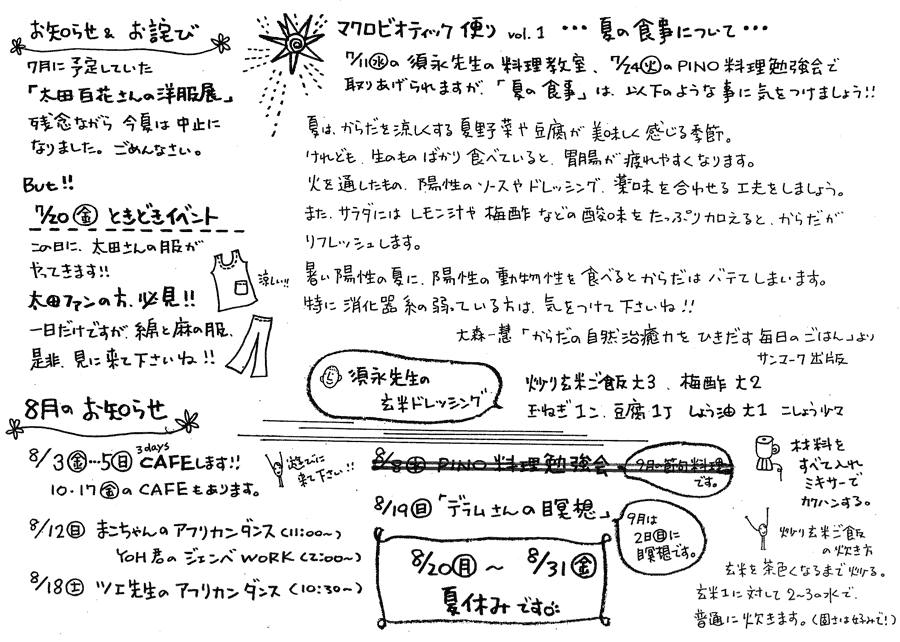 お知らせ & お詫び
7月に予定していた
「太田百花さんの洋服展」
残念ながら 今夏は中止に
なりました。ごめんなさい。
But!!
7/20 ㊎ ときどきイベント
この日に、太田さんの服が
やってきます!!
太田ファンの方、必見!!
一日だけですが、綿と麻の服、
是非、見に来て下さいね!!
涼しい!!
マクロビオティック 便り vol.1 ・・・ 夏の食事について・・・
7/11㊌の 須永先生の料理教室、7/24㊋のPINO料理勉強会で
取りあげられますが、「夏の食事」は、以下のような事に気をつけましょう!!
夏は、からだを涼しくする夏野菜や豆腐が美味しく感じる季節。
けれども、生のものばかり食べていると、胃腸が疲れやすくなります。
火を通したもの、陽性のソースやドレッシング、薬味を合わせる工夫をしましょう。
また、サラダには レモン汁や梅酢などの酸味をたっぷり加えると、からだが
リフレッシュします。
暑い陽性の夏に、陽性の動物性を食べるとからだはバテてしまいます。
特に消化器系の弱っている方は、気をつけて下さいね!!
大森一慧「からだの自然治癒力をひきだす毎日のごはん」より
サンマーク出版
須永先生の
玄米ドレッシング
炒り玄米ご飯 大3、梅酢 大2
玉ねぎ1コ、豆腐1丁 しょう油 大1 こしょう少々
材料を
すべて入れ、
ミキサーで
カクハンする。
炒り玄米ご飯
の炊き方
玄米を茶色くなるまで炒る。
玄米1に対して2~3の水で、
普通に炊きます。(固さは好みで!)
8月のお知らせ
8/3㊎…5㊐ 3days CAFEします!!
10・17㊎のCAFEもあります。
遊びに
来て下さい!!
8/12㊐ まこちゃんのアフリカンダンス(11:00~)
YOH君のジェンベWORK(2:00~)
8/18㊏ ツエ先生のアフリカンダンス(10:30~)
8/8㊌ PINO料理勉強会
9月・節句料理
です。
8/19㊐「デラムさんの瞑想」
9月は
2日㊐に
瞑想です。
8/20㊊ ~ 8/31㊎
夏休みです。